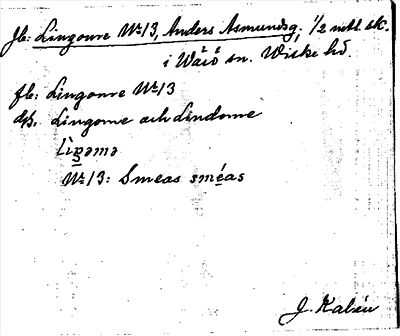 Jb: Lingonre No 13, Anders Asmundsg, 1/2 mtl sk.
i Wärö sn. Wiske hd
fb: Lingonre No 13
dp. Lingome och Lindome
No 13: Smeas sméas
J. Kalén